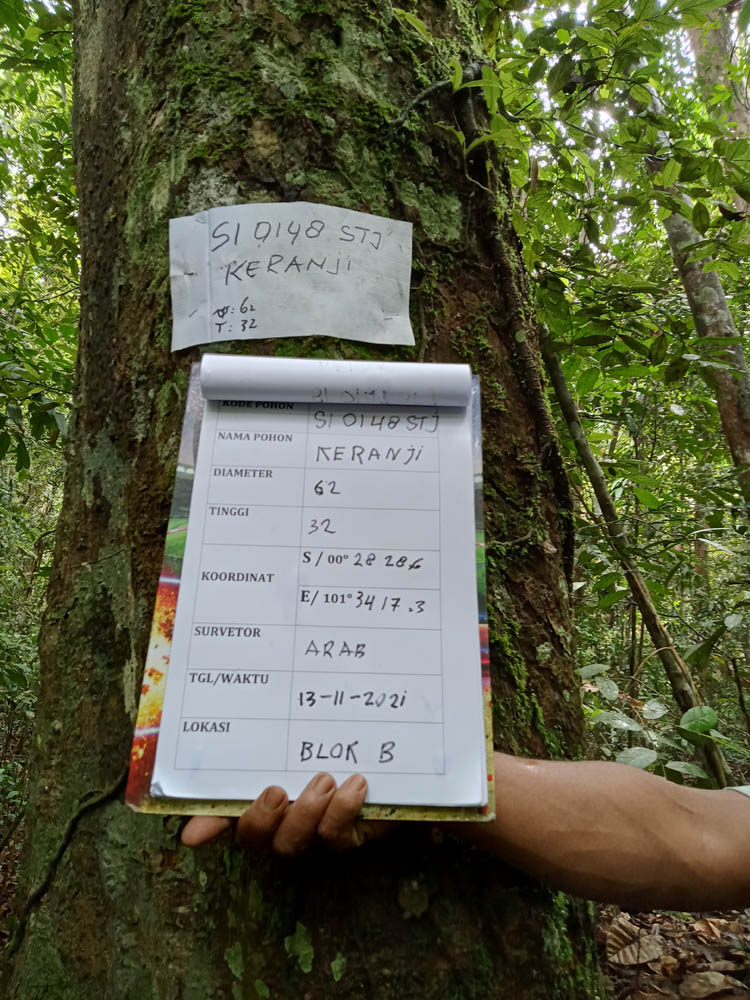 SI 0148 STJ
KERANJI
Ø: 62
T: 32
KODE POHON SI 0148 STJ
NAMA POHON KERANJI
DIAMETER 62
TINGGI 32
KOORDINAT S / 00° 28 28.6
E/ 101° 34 17.3
SURVETOR ARAB
TGL/WAKTU 13-11-2021
LOKASI BLOK B